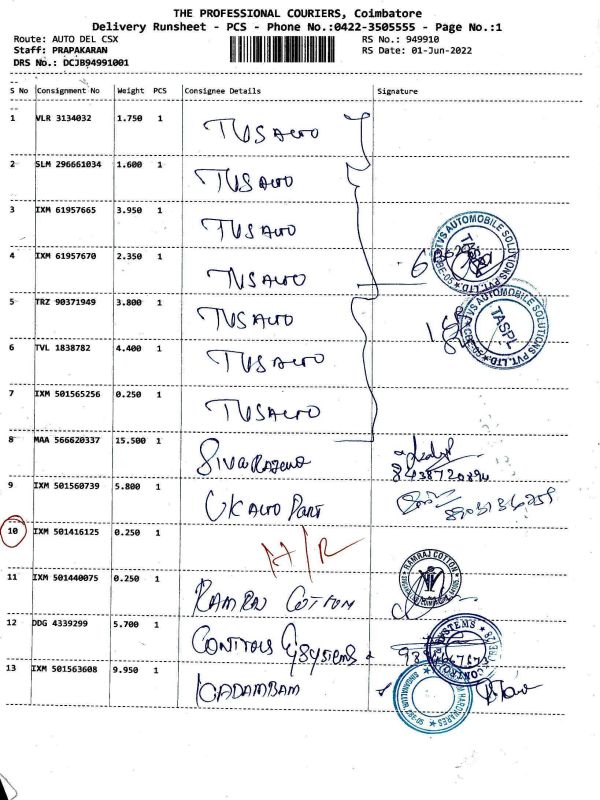 THE PROFESSIONAL COURIERS, Coimbatore
Delivery Runsheet - PCS - Phone No.:0422-3505555 - Page No.:1
Route: AUTO DEL CSX RS No.: 949910
Staff: PRAPAKARAN RS Date: 01-Jun-2022
DRS No.: DCJB94991001
S No Consignment No Weight PCS Consignee Details Signature
1 VLR 3134032 1.750 1 TVS AUTO
2 SLM 296661034 1.600 1 TVS AUTO
3 IXM 61957665 3.950 1 TVS AUTO
TVS AUTOMOBILE SOLUTIONS PVT. LTD.
4 IXM 61957670 2.350 1 TVS AUTO
5 TRZ 90371949 3.800 1 TVS AUTO
TVS AUTOMOBILE SOLUTIONS PVT. LTD. TASPL
6 TVL 1838782 4.400 1 TVS AUTO
7 IXM 501565256 0.250 1 TVS AUTO
8 MAA 566620337 15.500 1
9 IXM 501560739 5.800 1 UK AUTO PART
10 IXM 501416125 0.250 1 A/R
11 IXM 501440075 0.250 1 RAMRAJ COTTON RAMRAJ COTTON
12 DDG 4339299 5.700 1 CONTROLS SYSTEMS
13 IXM 501563608 9.950 1 KADAMBAM